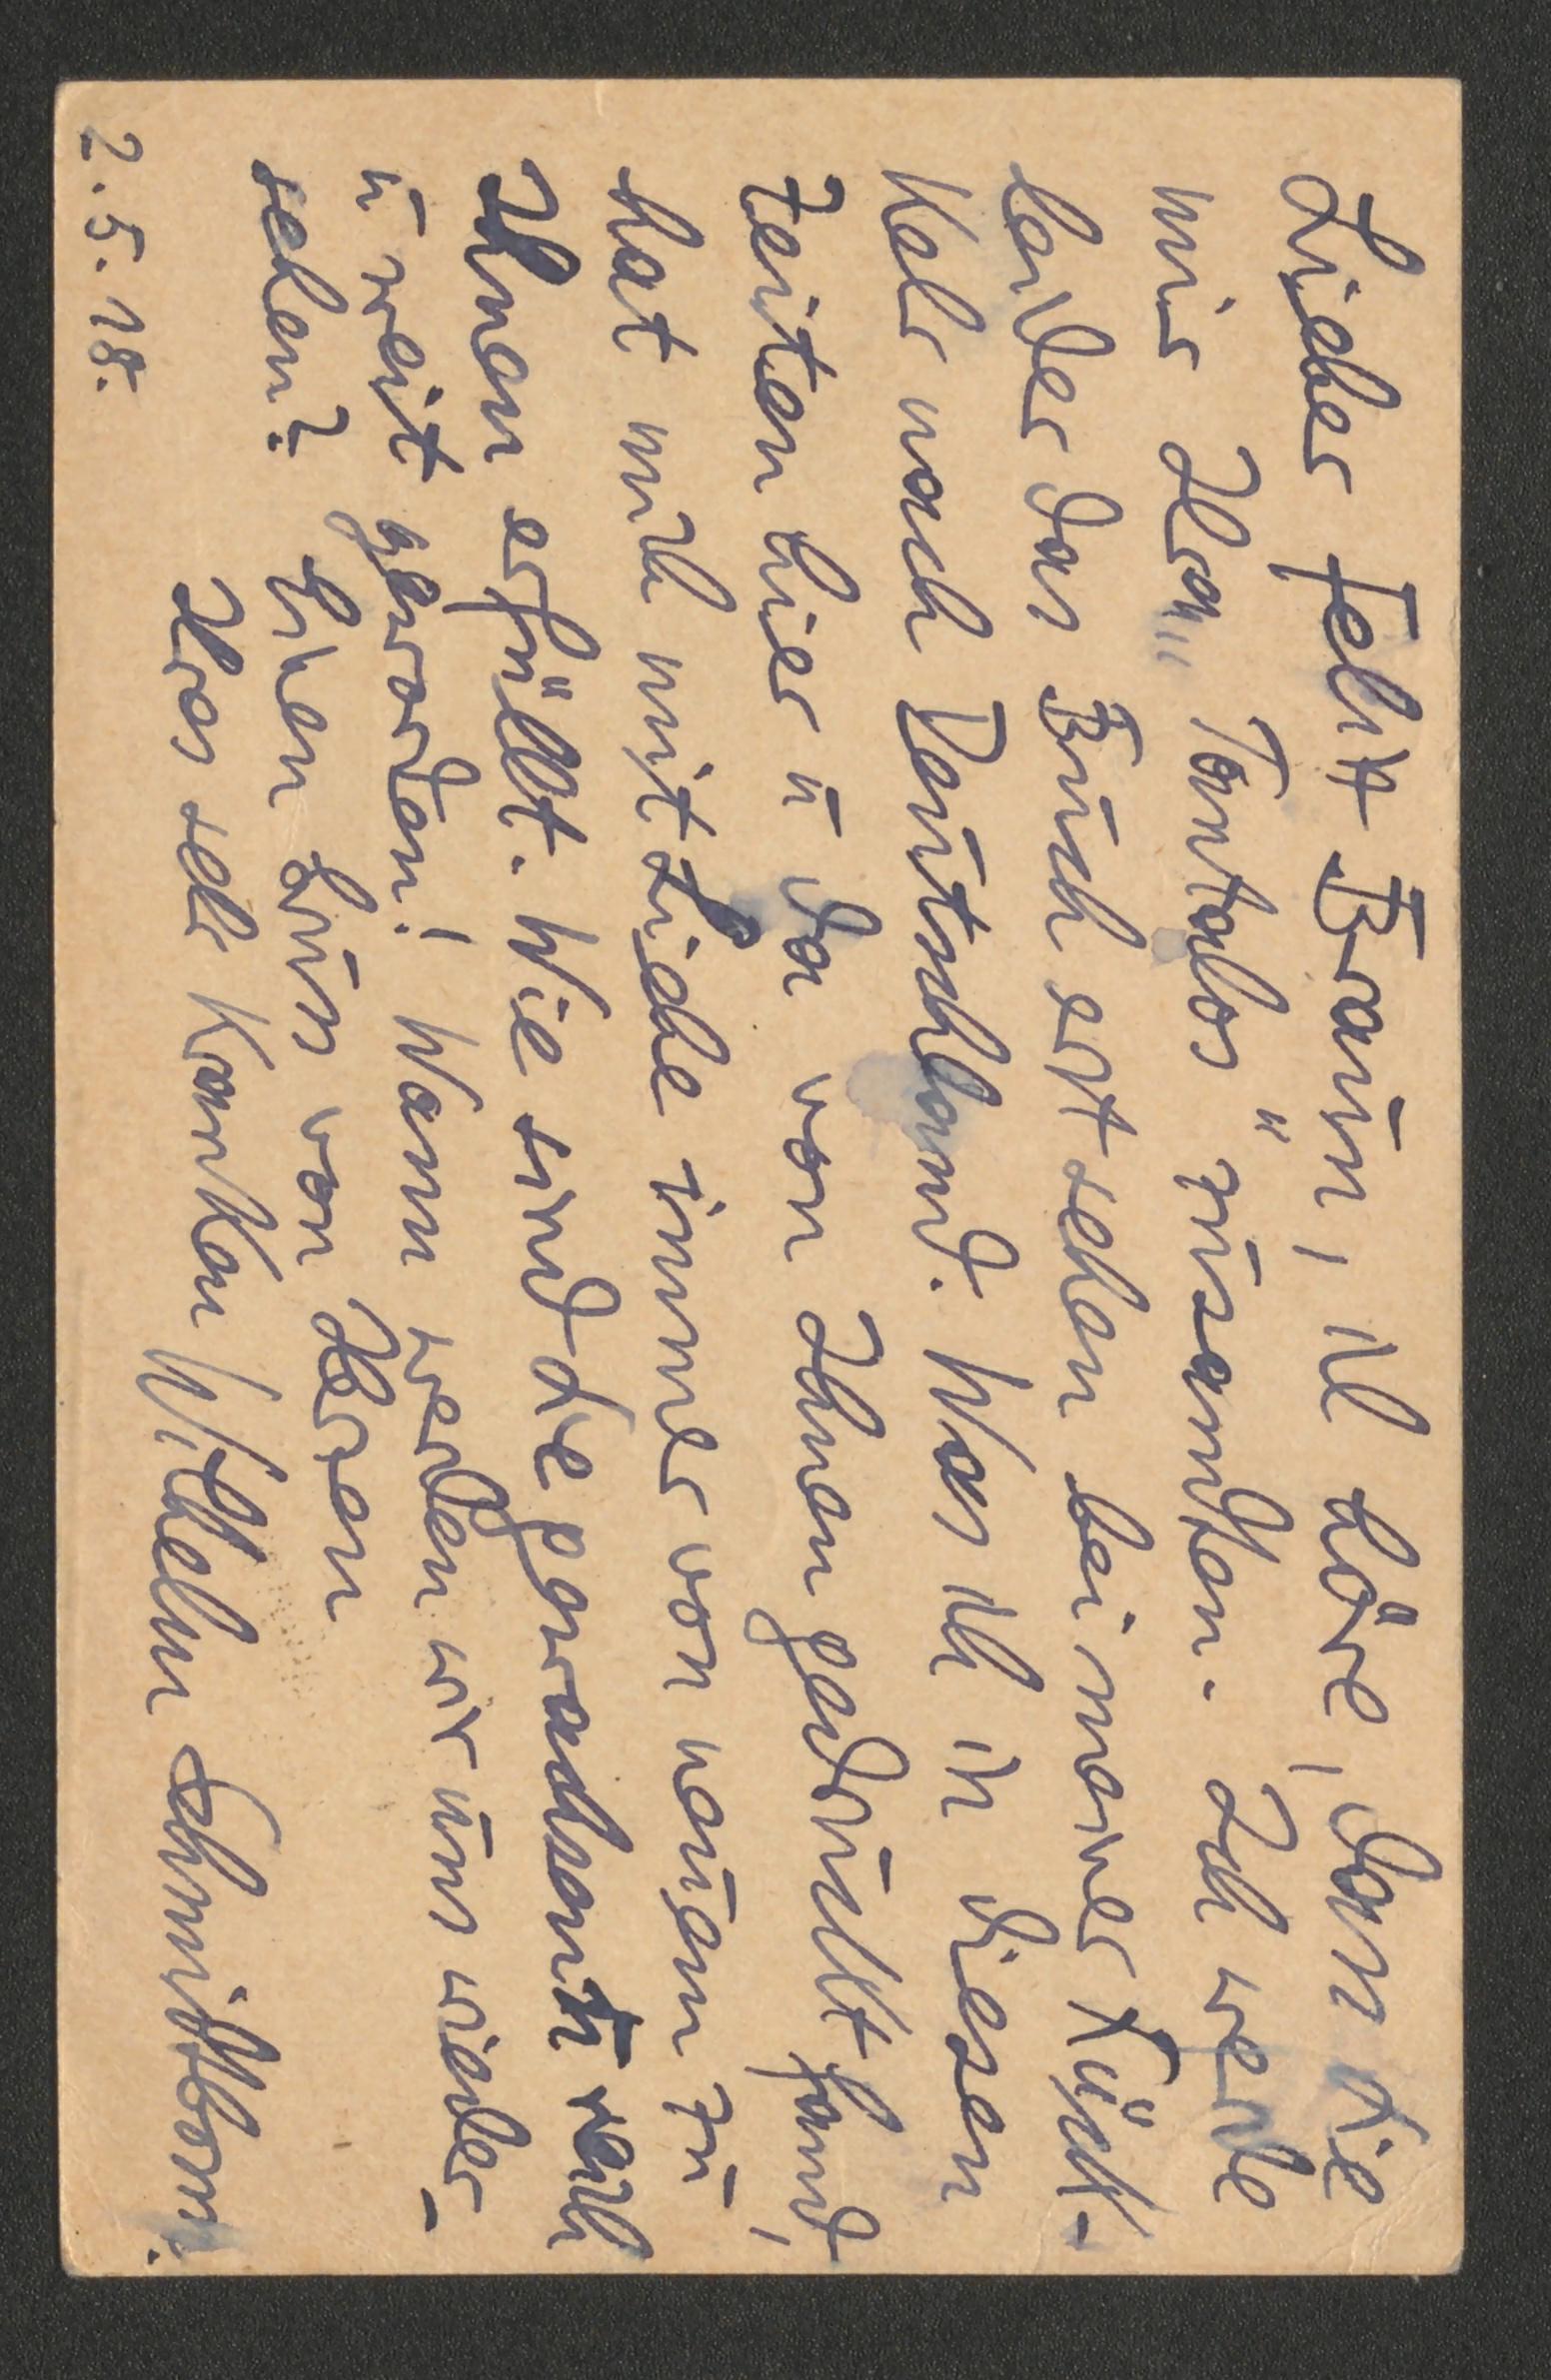 Lieber Felix Braun, ich höre, dass Sie
mir Ihren „Tantalos“ zusandten. Ich werde
leider das Buch erst sehen bei meiner Rück-
kehr nach Deutschland. Was ich in diesen
Zeiten hier u da von Ihnen gedruckt fand,
hat mich mit Liebe immer von neuem zu
Ihnen erfüllt. Wie sind Sie gewachsen reich
u weit geworden! Wann werden wir uns wieder-
sehen?
Einen Gruss von Ihrem
Ihres sehr kranken Wilhelm Schmidtbonn.
2.5.18.